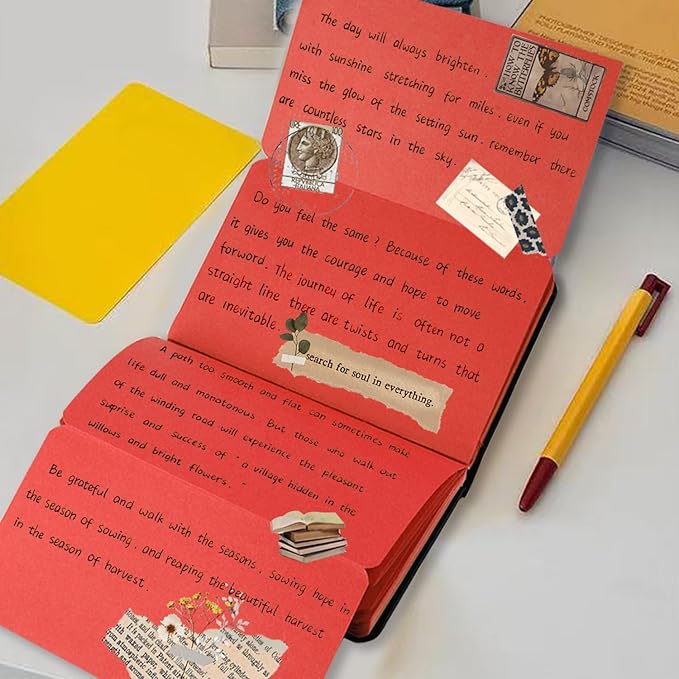 PHOTOGRAPHER / DESIGNER
The day will always brighten,
with sunshine stretching for miles, even if you
miss the glow of the setting sun, remember there
are countless stars in the sky.
HOW TO
KNOW THE
BUTTERFLIES
COMSTOCK
REPVBBLICA
ITALIANA
Do you feel the same? Because of these words,
it gives you the courage and hope to move
forword. The journey of life is often not a
straight line there are twists and turns that
are inevitable.
search for soul in everything.
A path too smooth and flat can sometimes make
life dull and monotonous. But those who walk out
of the winding road will experience the pleasant
Suprise and success of "a village hidden in the
willows and bright flowers."
Be grateful and walk with the seasons, sowing hope in
the season of sowing, and reaping the beautiful harvest
in the season of harvest.